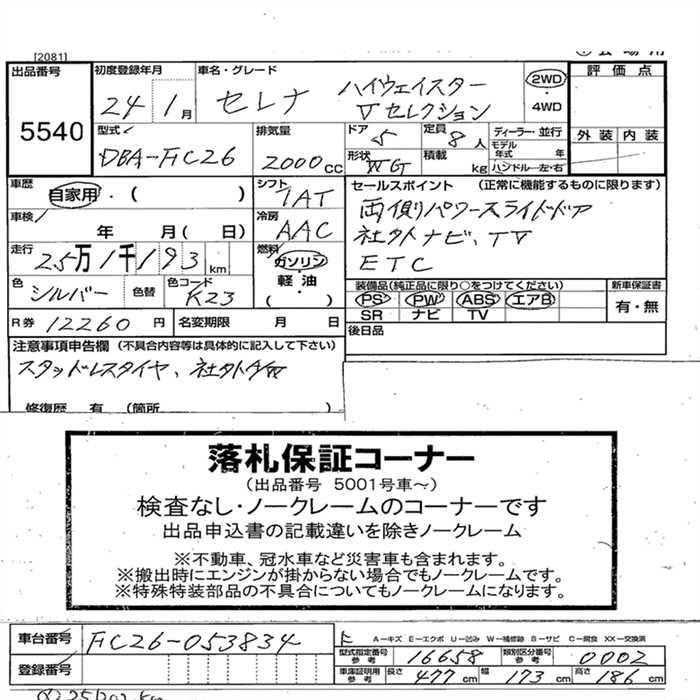 [2081]
出品番号 5540
初度登録年月 24 1月
車名・グレード セレナ ハイウェイスター
Vセレクション
2WD・4WD
評価点
外装 内装
型式 DBA-FC26
排気量 2000cc
ドア 5
定員 8人
形状 WG
積載 kg
ディーラー・並行
モデル年式 年
ハンドル-左・右
車歴 自家用・( )
シフト IAT
セールスポイント (正常に機能するものに限ります)
両側パワースライドドア
社外ナビ、TV
ETC
車検 年 月(日)
冷房 AAC
走行 25万1千193km
燃料 ガソリン・軽油・( )
色 シルバー 色替
色コード K23
装備品(純正品に限り○をつけてください)
PS PW ABS エアB
SR ナビ TV
新車保証書 有・無
R券 12260円
名変期限 月 日
後日品
注意事項申告欄 (不具合内容等は具体的に記入して下さい)
スタッドレスタイヤ、社外
修復歴 有 (箇所
落札保証コーナー
(出品番号 5001号車〜)
検査なし・ノークレームのコーナーです
出品申込書の記載違いを除きノークレーム
※不動車、冠水車など災害車も含まれます。
※搬出時にエンジンが掛からない場合でもノークレームです。
※特殊特装部品の不具合についてもノークレームになります。
車台番号 FC26-053834
A-キズ E-エクボ U-凹み W-補修跡 S-サビ C-腐食 XX-交換済
登録番号
型式指定番号 参考 16658
類別区分番号 参考 0002
車庫証明用 参考 長さ 477cm 幅 173cm 高さ 186cm